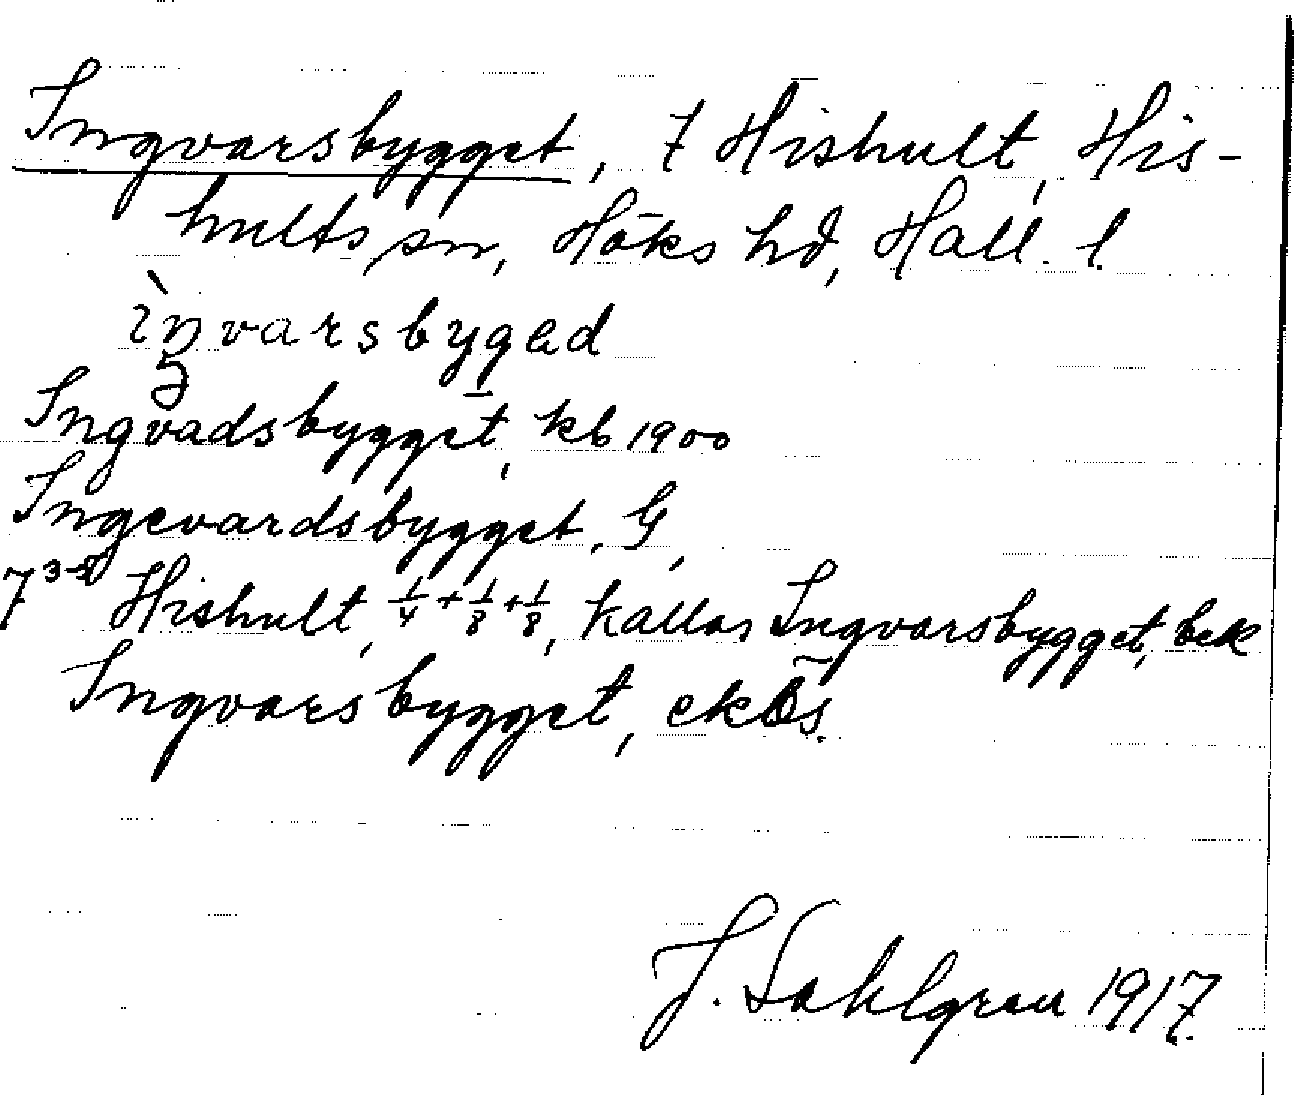 Ingvarsbygget, 7 Hishult, His-
hults sn, Höks hd, Hall. l.
ìŋvarsbygəd
Ingvadsbygget, kb 1900
Ingevardsbygget, G,
7 Hishult, 1/4+1/8+1/8, kallas Ingvarsbygget, bek
Ingvarsbygget, ekõs.
J. Sahlgren 1917.